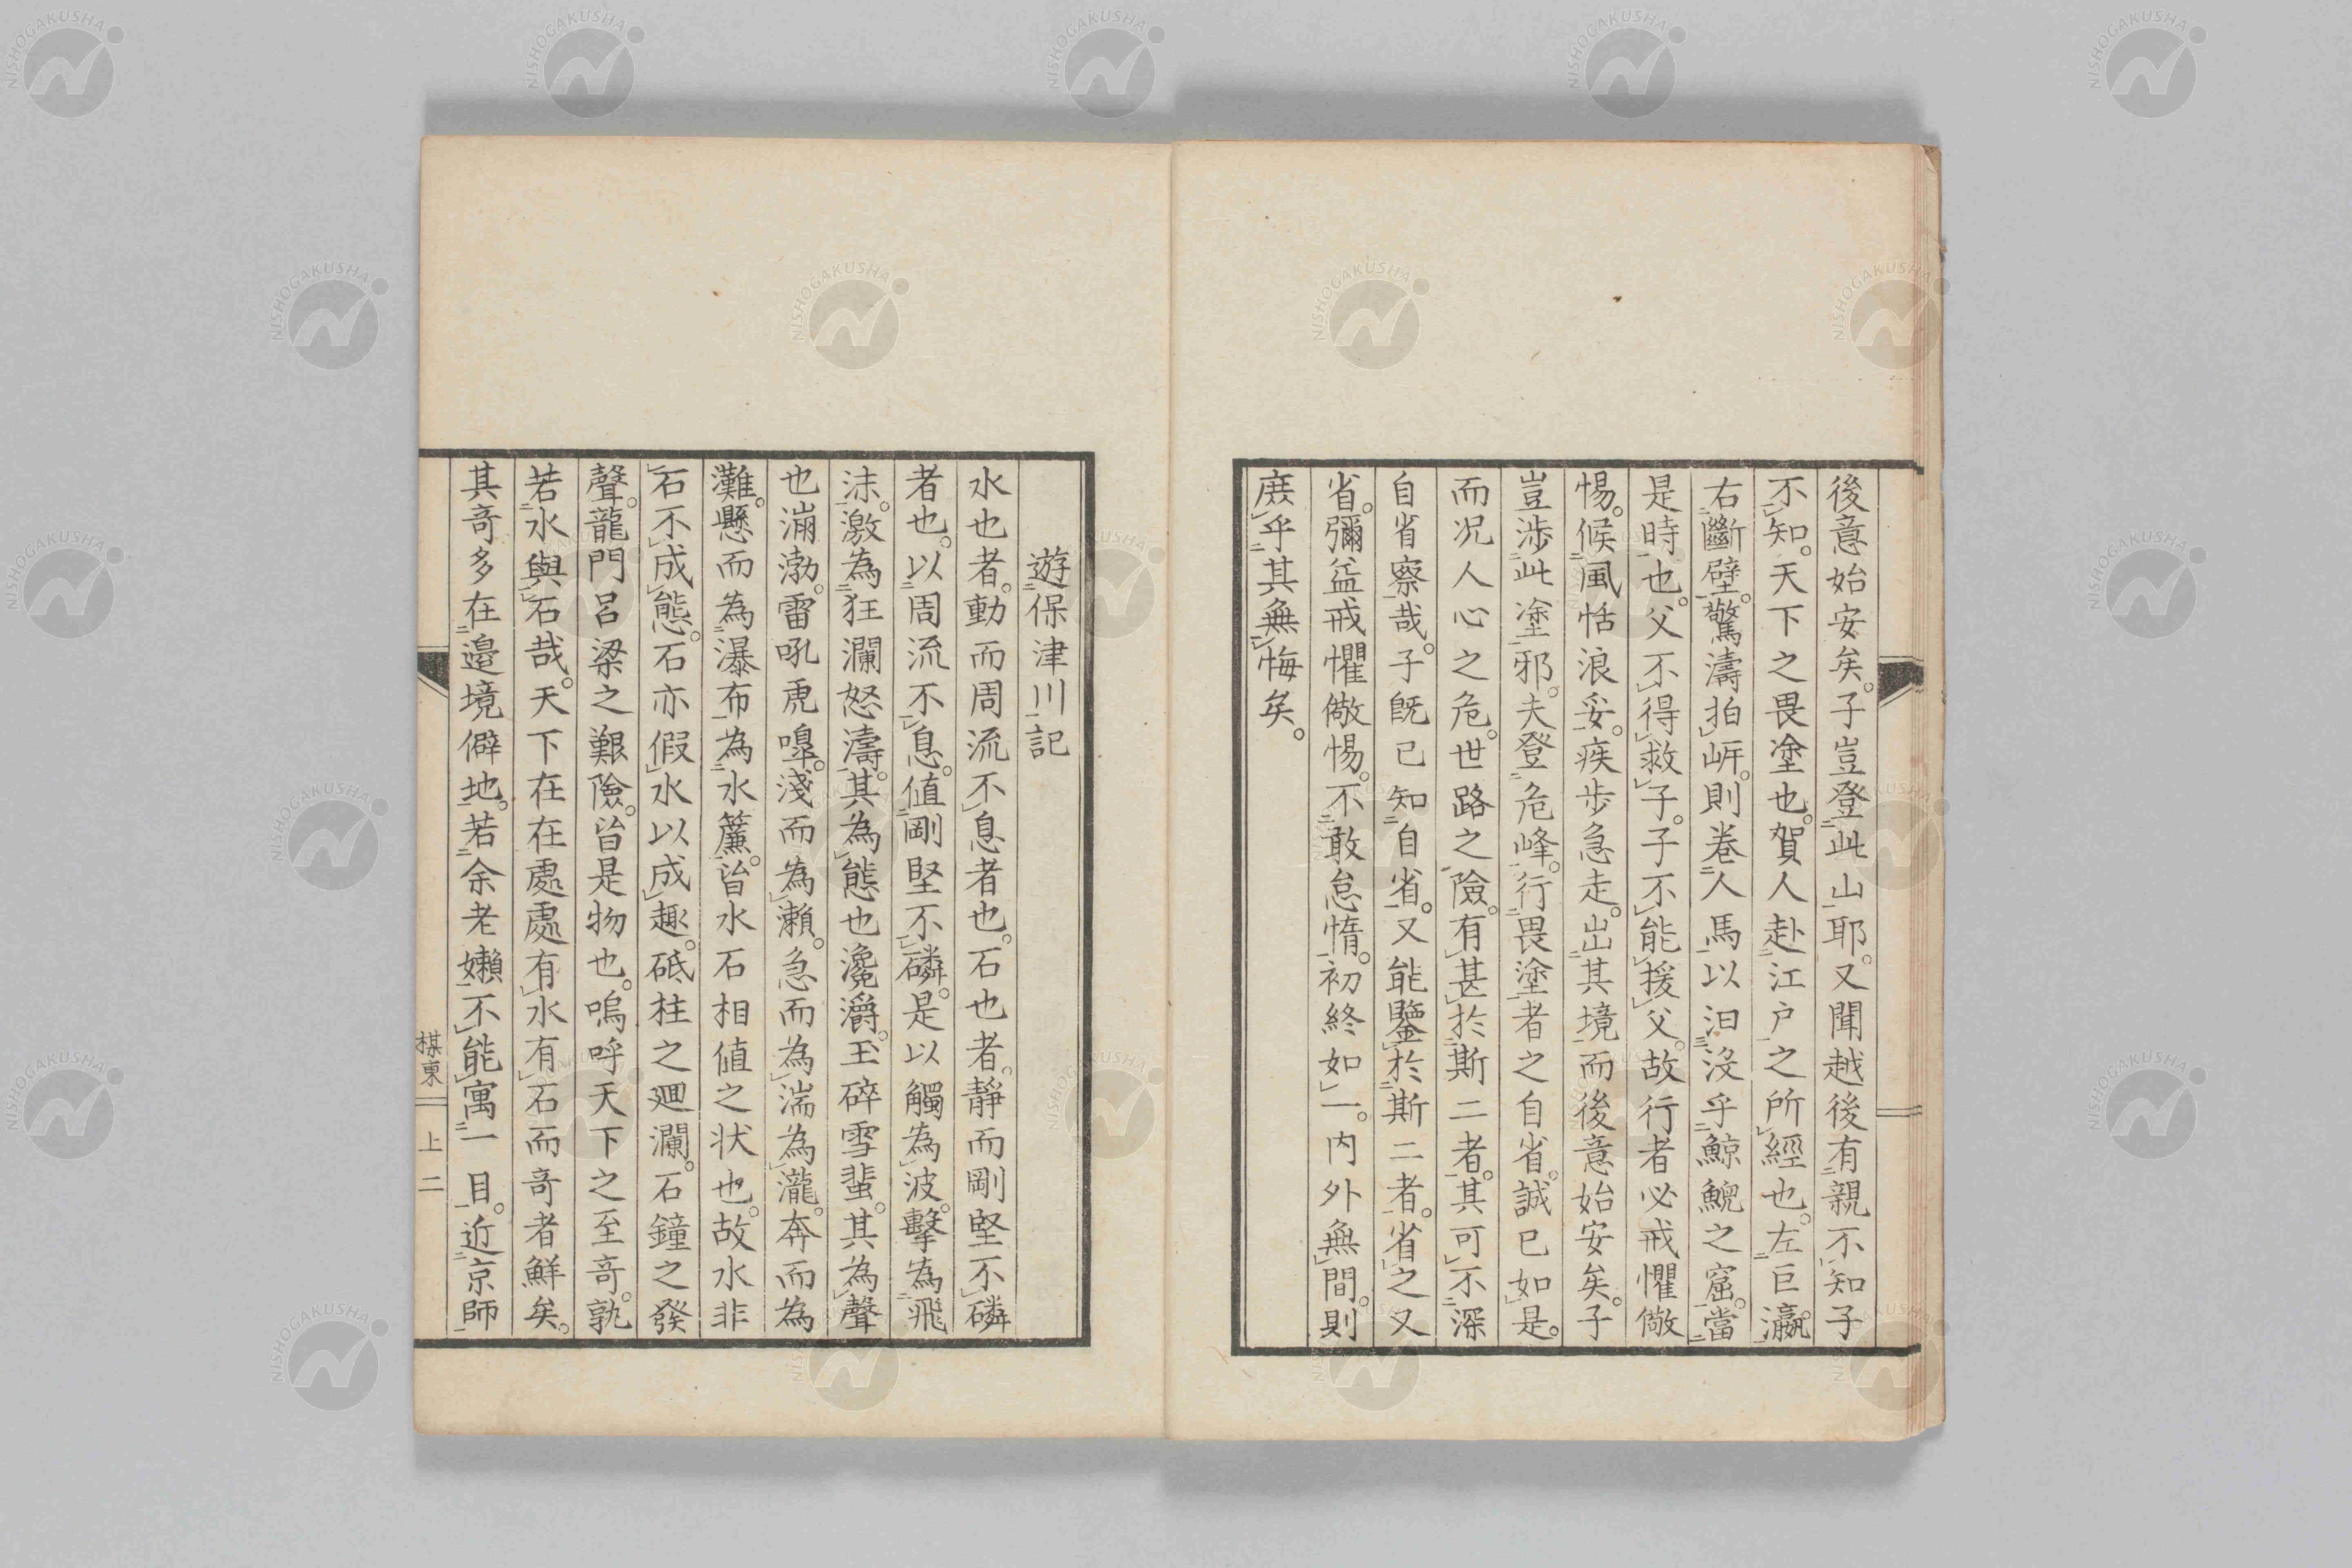 後意始安矣。子豈登此山耶。又聞越後有親不知子
不知。天下之畏塗也。賀人赴江戶之所經也。左巨瀛。
右斷壁。驚濤拍岍。則卷人馬以汩沒乎鯨鯢之窟。當
是時也。父不得救子。子不能援父。故行者必戒懼儆
惕。候風恬浪妥。疾步急走。出其境而後意始安矣。子
豈涉此塗邪。夫登危峰。行畏塗者之自省。誠已如是。
而况人心之危。世路之險。有甚於斯二者。其可不深
自省察哉。子既已知自省。又能鑒於斯二者。省之又
省。彌益戒懼儆惕。不敢怠惰。初終如一。內外無間。則
庶乎其無悔矣。
遊保津川記
水也者。動而周流不息者也。石也者。靜而剛堅不磷
者也。以周流不息。值剛堅不磷。是以觸為波。擊為飛
沫。激為狂瀾怒濤。其為態也瀺灂。玉碎雪蜚。其為聲
也漰渤。雷吼虎嘷。淺而為瀨。急而為湍為瀧。奔而為
灘。懸而為瀑布為水簾。皆水石相值之状也。故水非
石不成態。石亦假水以成趣。砥柱之廻瀾。石鐘之發
聲。龍門呂梁之艱險。皆是物也。嗚呼天下之至奇。孰
若水與石哉。天下在在處處有水有石而奇者鮮矣。
其奇多在邊境僻地。若余老嬾不能寓一目。近京師
棋東
上
二
NISHOGAKUSHA